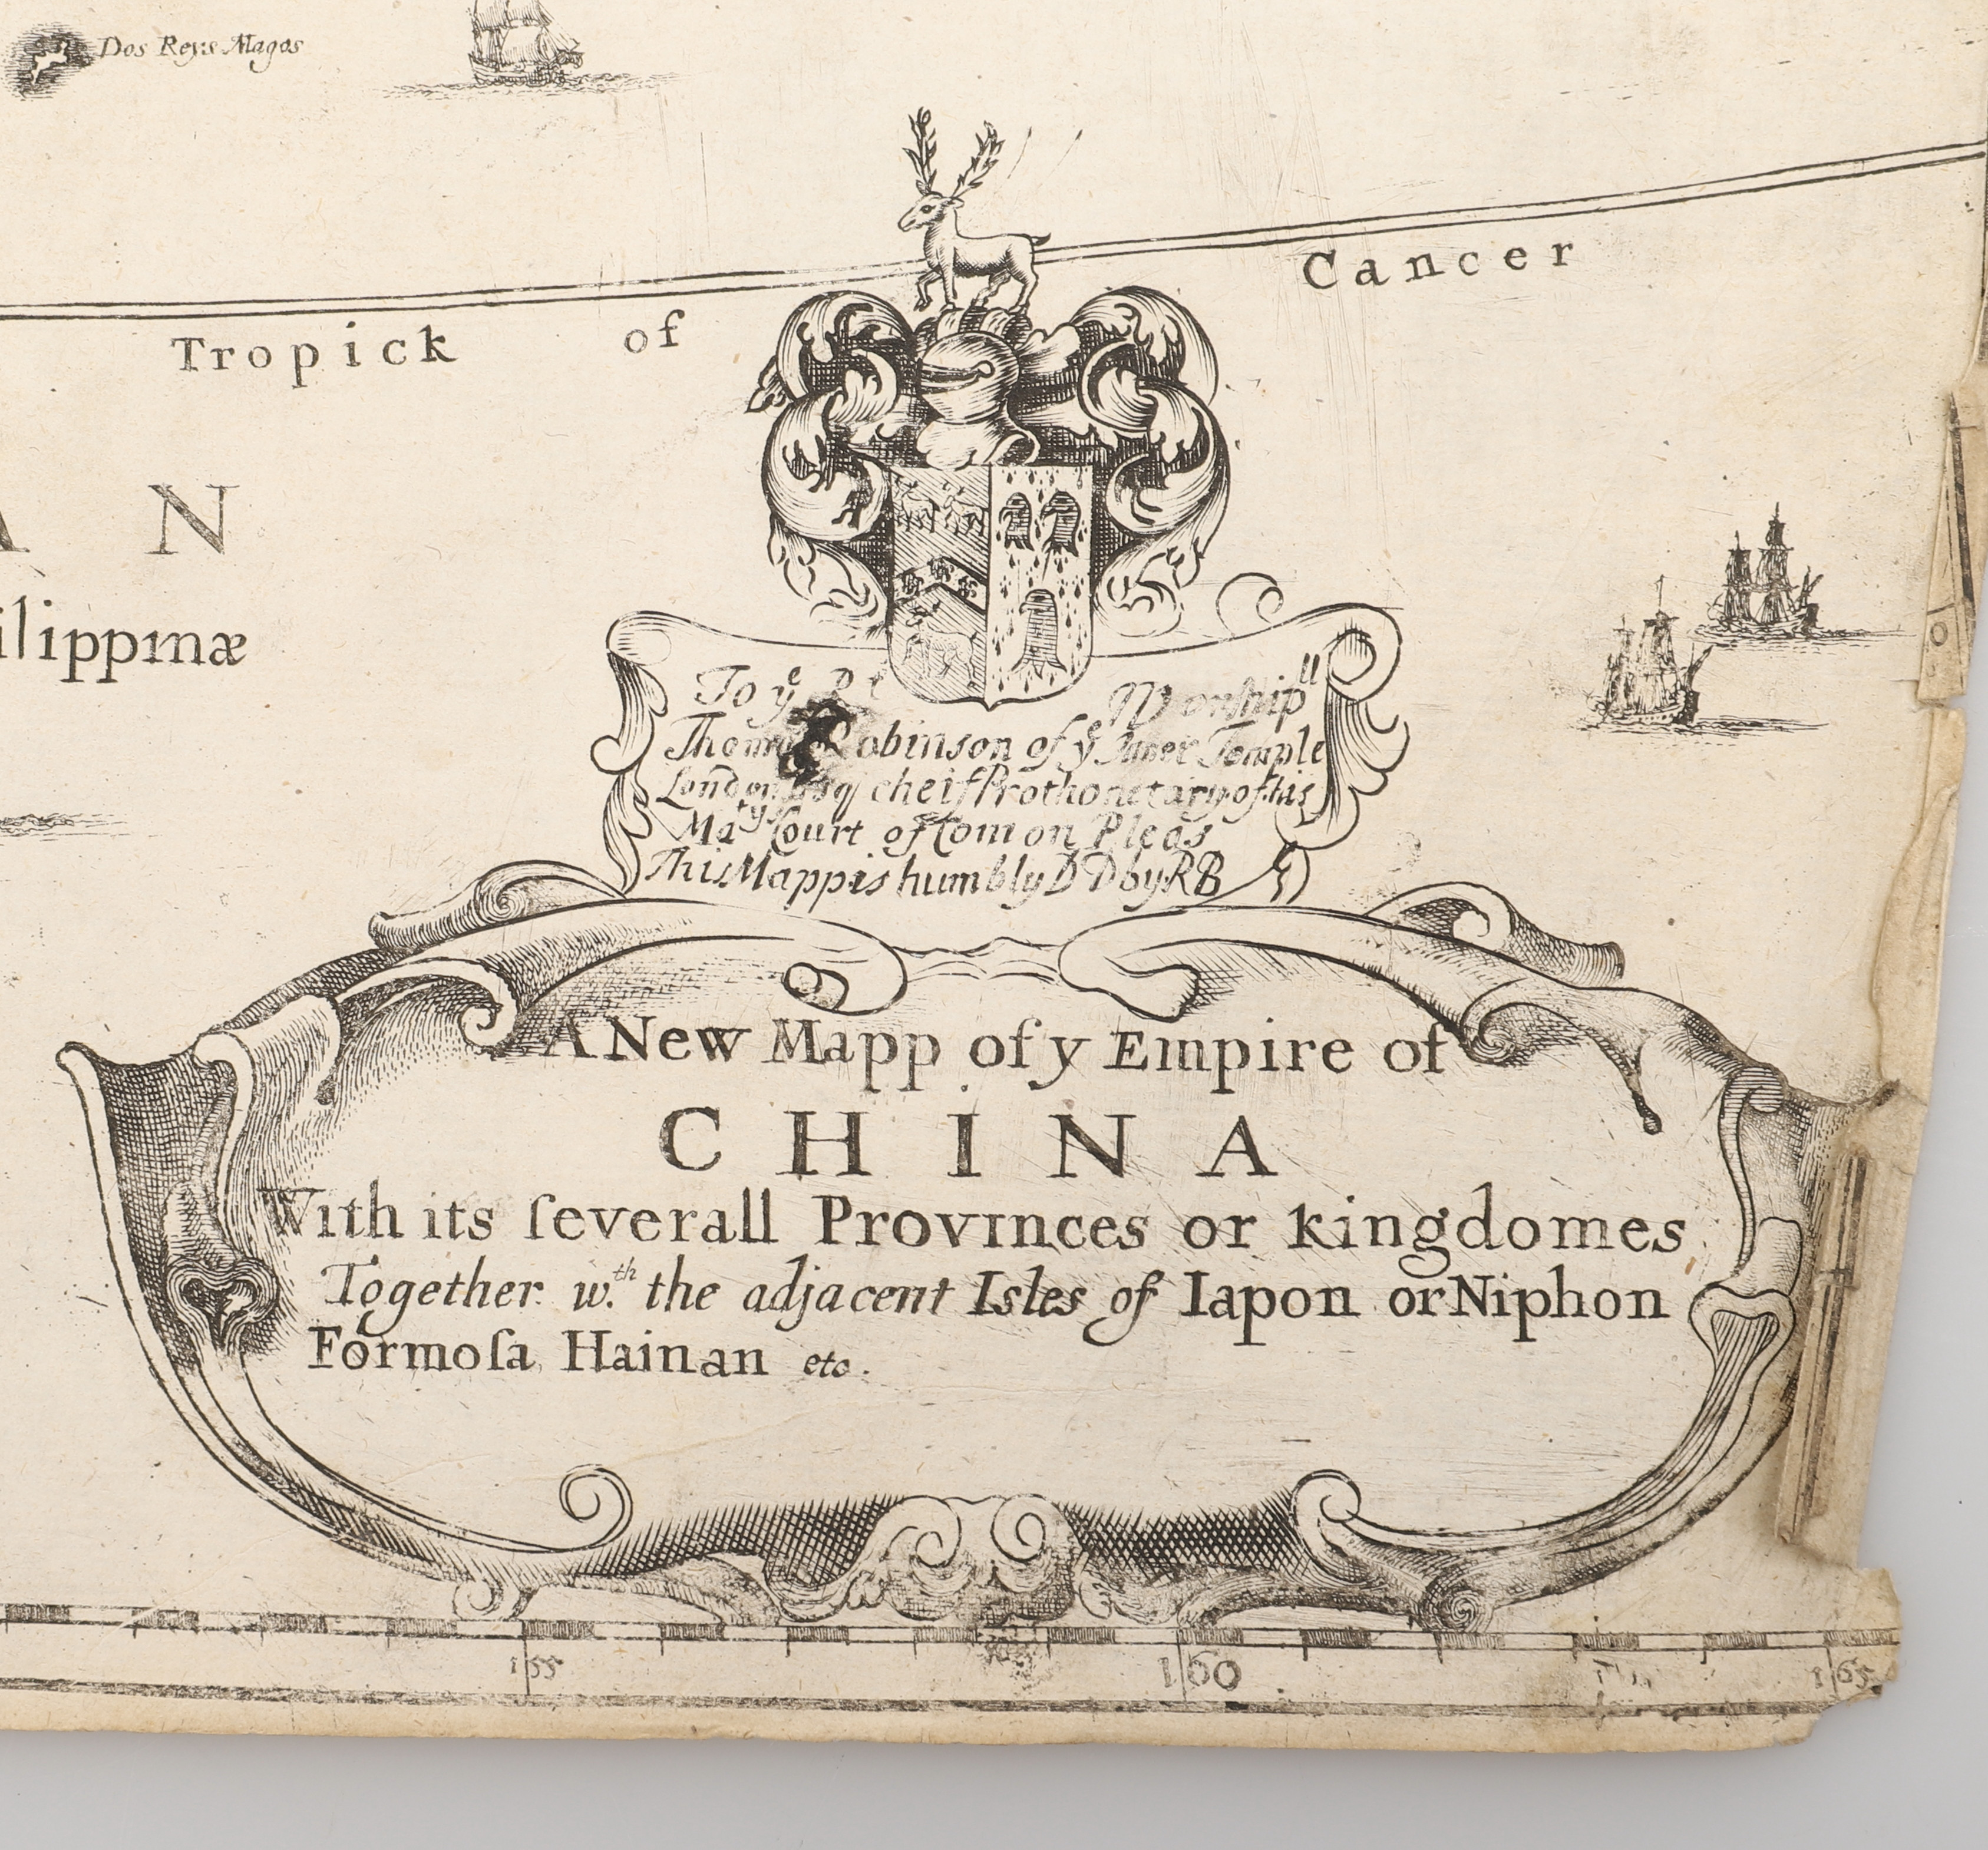 Dos Reys Magos
Tropick of Cancer
N
ilippinæ
To yᵉ Worshipˡˡ
Robinson of yᵉ Inner Temple
London Esqʳ cheif Prothonetary of his
Maᵗʸˢ Court of Comon Pleas
This Mapp is humbly D D by RB
A New Mapp of y Empire of
CHINA
With its ſeverall Provinces or kingdomes
Together w.ᵗʰ the adjacent Isles of Iapon or Niphon
Formoſa Hainan etc.
155 160 165